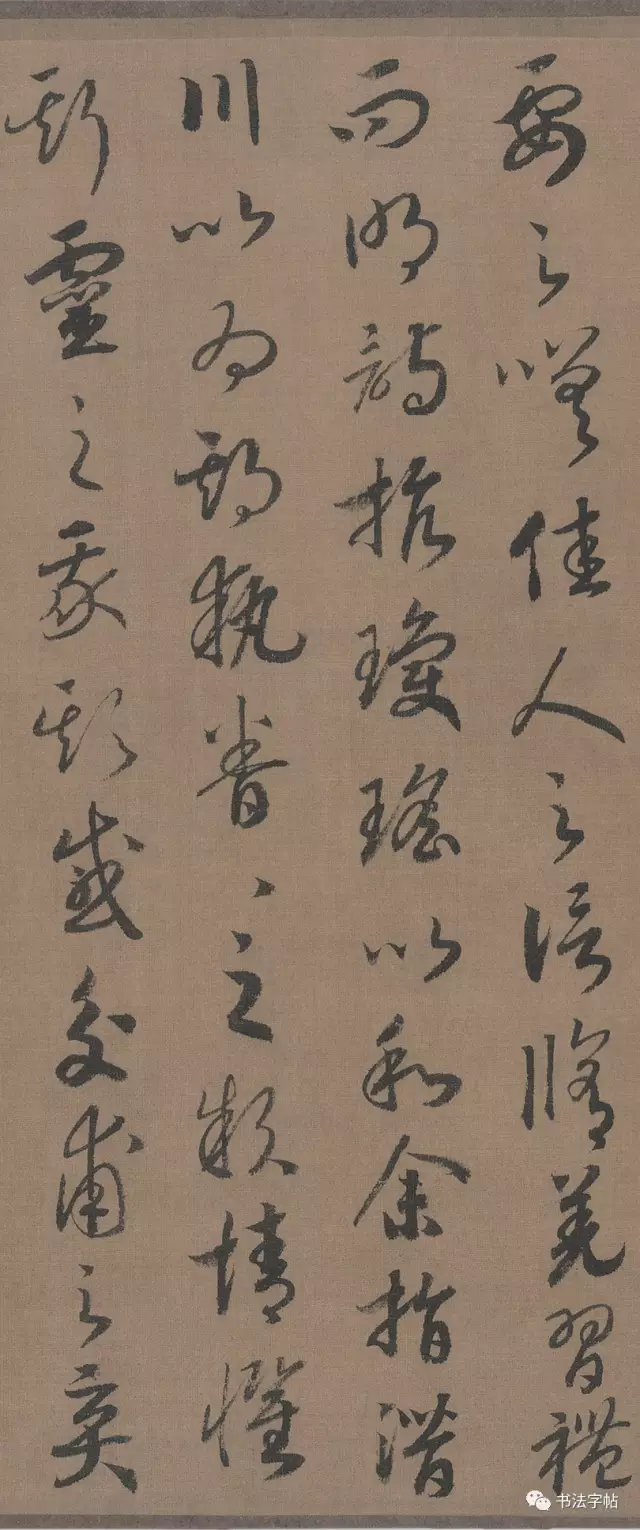 要之嗟佳人之信脩羌習禮
而明詩抗瓊瑤以和余指潛
川以為期執眷、之款情懼
斯靈之我欺感交甫之棄
书法字帖